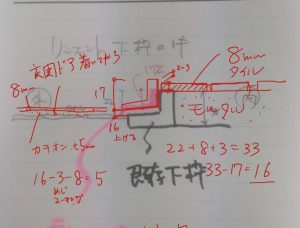 下枠の件
玄関ドア着いてから
2~3
8mm
タイル
8mm
17
モルタル
16
上げる
カチオン t5mm
22+8+3=33
既存下枠
33-17=16
16-3-8=5